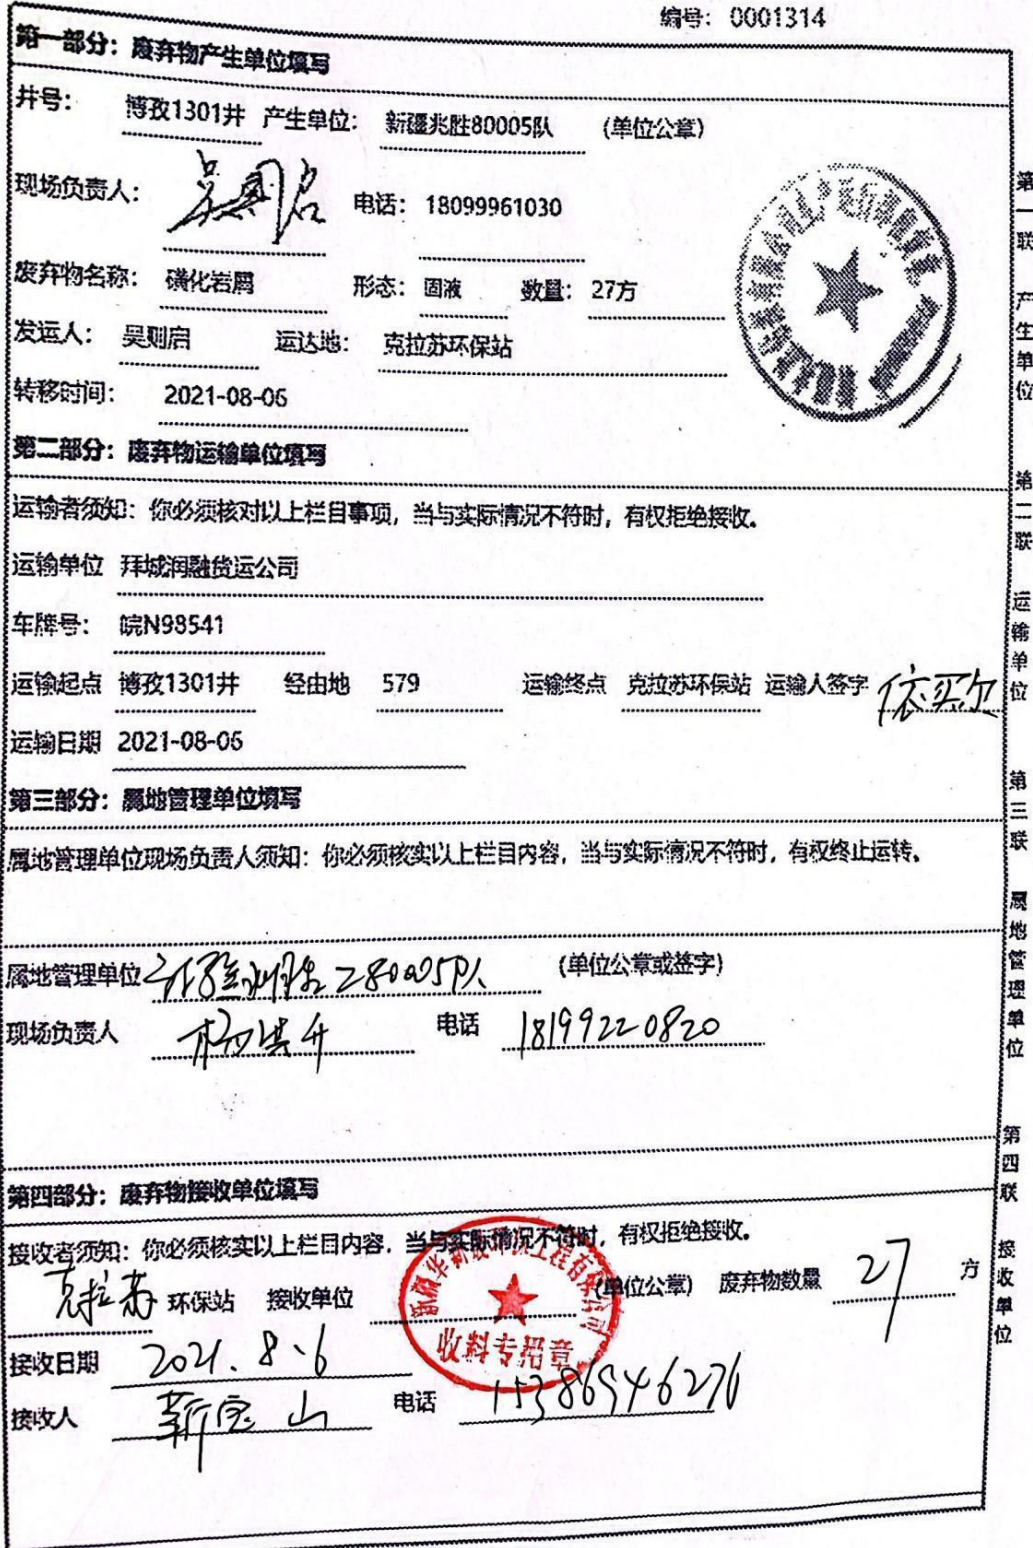 编号：0001314
第一部分：废弃物产生单位填写
井号：博孜1301井 产生单位：新疆兆胜80005队 （单位公章）
现场负责人：吴则启 电话：18099961030
废弃物名称：磺化岩屑 形态：固液 数量：27方
发运人：吴则启 运达地：克拉苏环保站
转移时间：2021-08-06
第二部分：废弃物运输单位填写
运输者须知：你必须核对以上栏目事项，当与实际情况不符时，有权拒绝接收。
运输单位 拜城润融货运公司
车牌号：皖N98541
运输起点 博孜1301井 经由地 579 运输终点 克拉苏环保站 运输人签字 依买尔
运输日期 2021-08-06
第三部分：属地管理单位填写
属地管理单位现场负责人须知：你必须核实以上栏目内容，当与实际情况不符时，有权终止运转。
属地管理单位 80005队 （单位公章或签字）
现场负责人 杨洪升 电话 18199220820
第四部分：废弃物接收单位填写
接收者须知：你必须核实以上栏目内容，当与实际情况不符时，有权拒绝接收。
克拉苏 环保站 接收单位 （单位公章） 废弃物数量 27 方
收料专用章
接收日期 2021.8.6
接收人 靳宝山 电话 15386946276
第一联 产生单位 第二联 运输单位 第三联 属地管理单位 第四联 接收单位